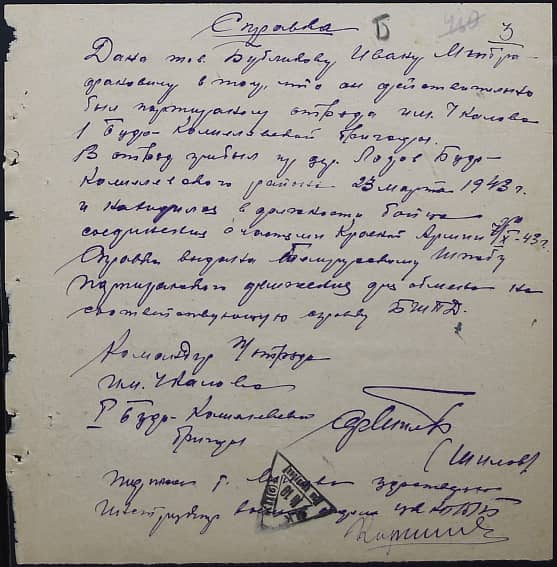 Справка
Б 3
Дано тов. Бубликову Ивану Митро-
фановичу в том, что он действительно
был партизаном отряда им. Чкалова
1 Буда-Кошелевской бригады.
В отряд прибыл из дер. Буда-
Кошелевского района 23 марта 1943 г.
и находился в должности бойца до
соединения с частями Красной Армии XI-43 г.
Справка выдана Белорусскому Штабу
партизанского движения для обмена на
соответствующую справку БШПД.
Командир отряда
им. Чкалова
I Буда-Кошелевской
бригады
(Шилов)
Подпись т. удостоверяю
Инструктор отдела ЦК КП(б)Б